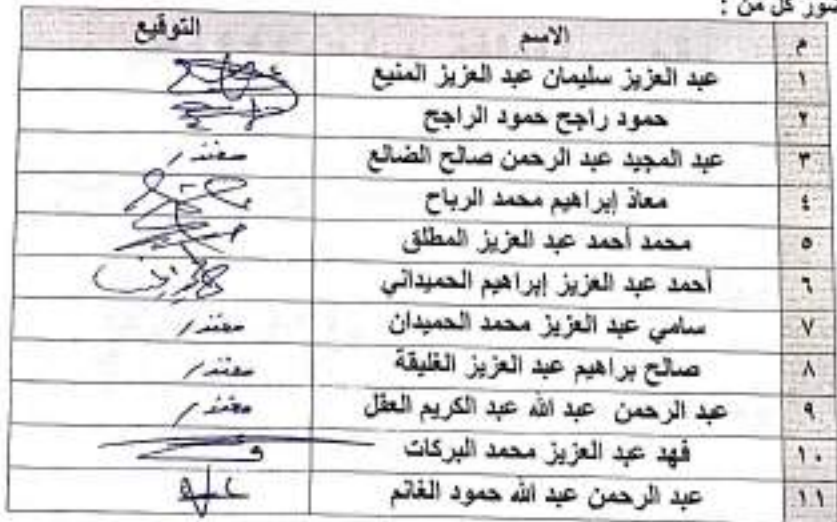 كل من :
م الاسم التوقيع
١ عبد العزيز سليمان عبد العزيز المنيع
٢ حمود راجح حمود الراجح
٣ عبد المجيد عبد الرحمن صالح الضالع معتذر
٤ معاذ إبراهيم محمد الرباح
٥ محمد أحمد عبد العزيز المطلق
٦ أحمد عبد العزيز إبراهيم الحميداني
٧ سامي عبد العزيز محمد الحميدان معتذر
٨ صالح براهيم عبد العزيز الغليقة معتذر
٩ عبد الرحمن عبد الله عبد الكريم العقل معتذر
١٠ فهد عبد العزيز محمد البركات
١١ عبد الرحمن عبد الله حمود الغانم